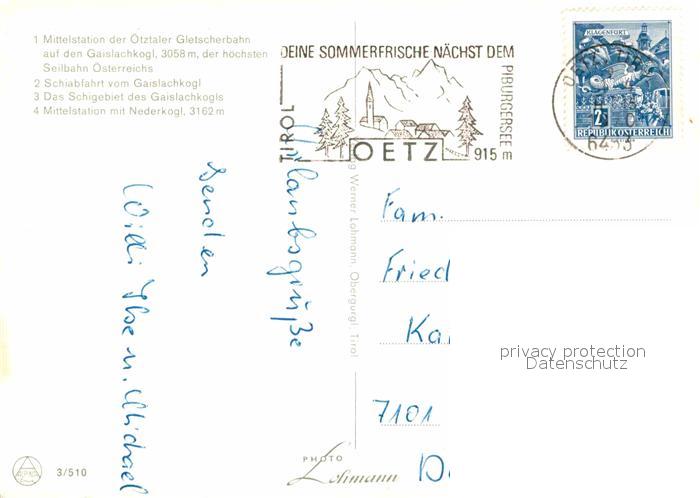 1 Mittelstation der Ötztaler Gletscherbahn
auf den Gaislachkogl, 3058 m, der höchsten
Seilbahn Österreichs
2 Schiabfahrt vom Gaislachkogl
3 Das Schigebiet des Gaislachkogls
4 Mittelstation mit Nederkogl, 3162 m
DEINE SOMMERFRISCHE NÄCHST DEM
PIBURGERSEE
TIROL
OETZ
915 m
KLAGENFURT
2S
REPUBLIK ÖSTERREICH
6433
Urlaubsgrüße
senden
Willi Ilse u. Michael
Werner Lohmann, Obergurgl, Tirol
Fam.
Fried
Ka
7101
D.
privacy protection
Datenschutz
3/510
PHOTO
Lohmann